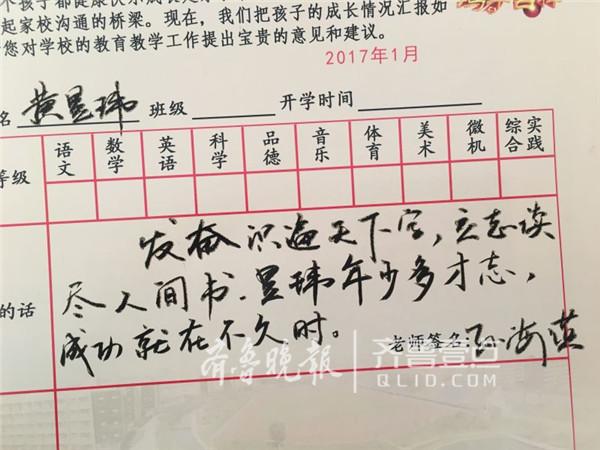 个孩子都健康快乐成长是
起家校沟通的桥梁。现在，我们把孩子的成长情况汇报如
您对学校的教育教学工作提出宝贵的意见和建议。
2017年1月
名 黄昱玮 班级 开学时间
语文 数学 英语 科学 品德 音乐 体育 美术 微机 综合实践
等级
发奋识遍天下字，立志读
尽人间书。昱玮年少多才志，
的话
成功就在不久时。
老师签名 孙海英
齐鲁晚报 齐鲁壹点
QLID.COM